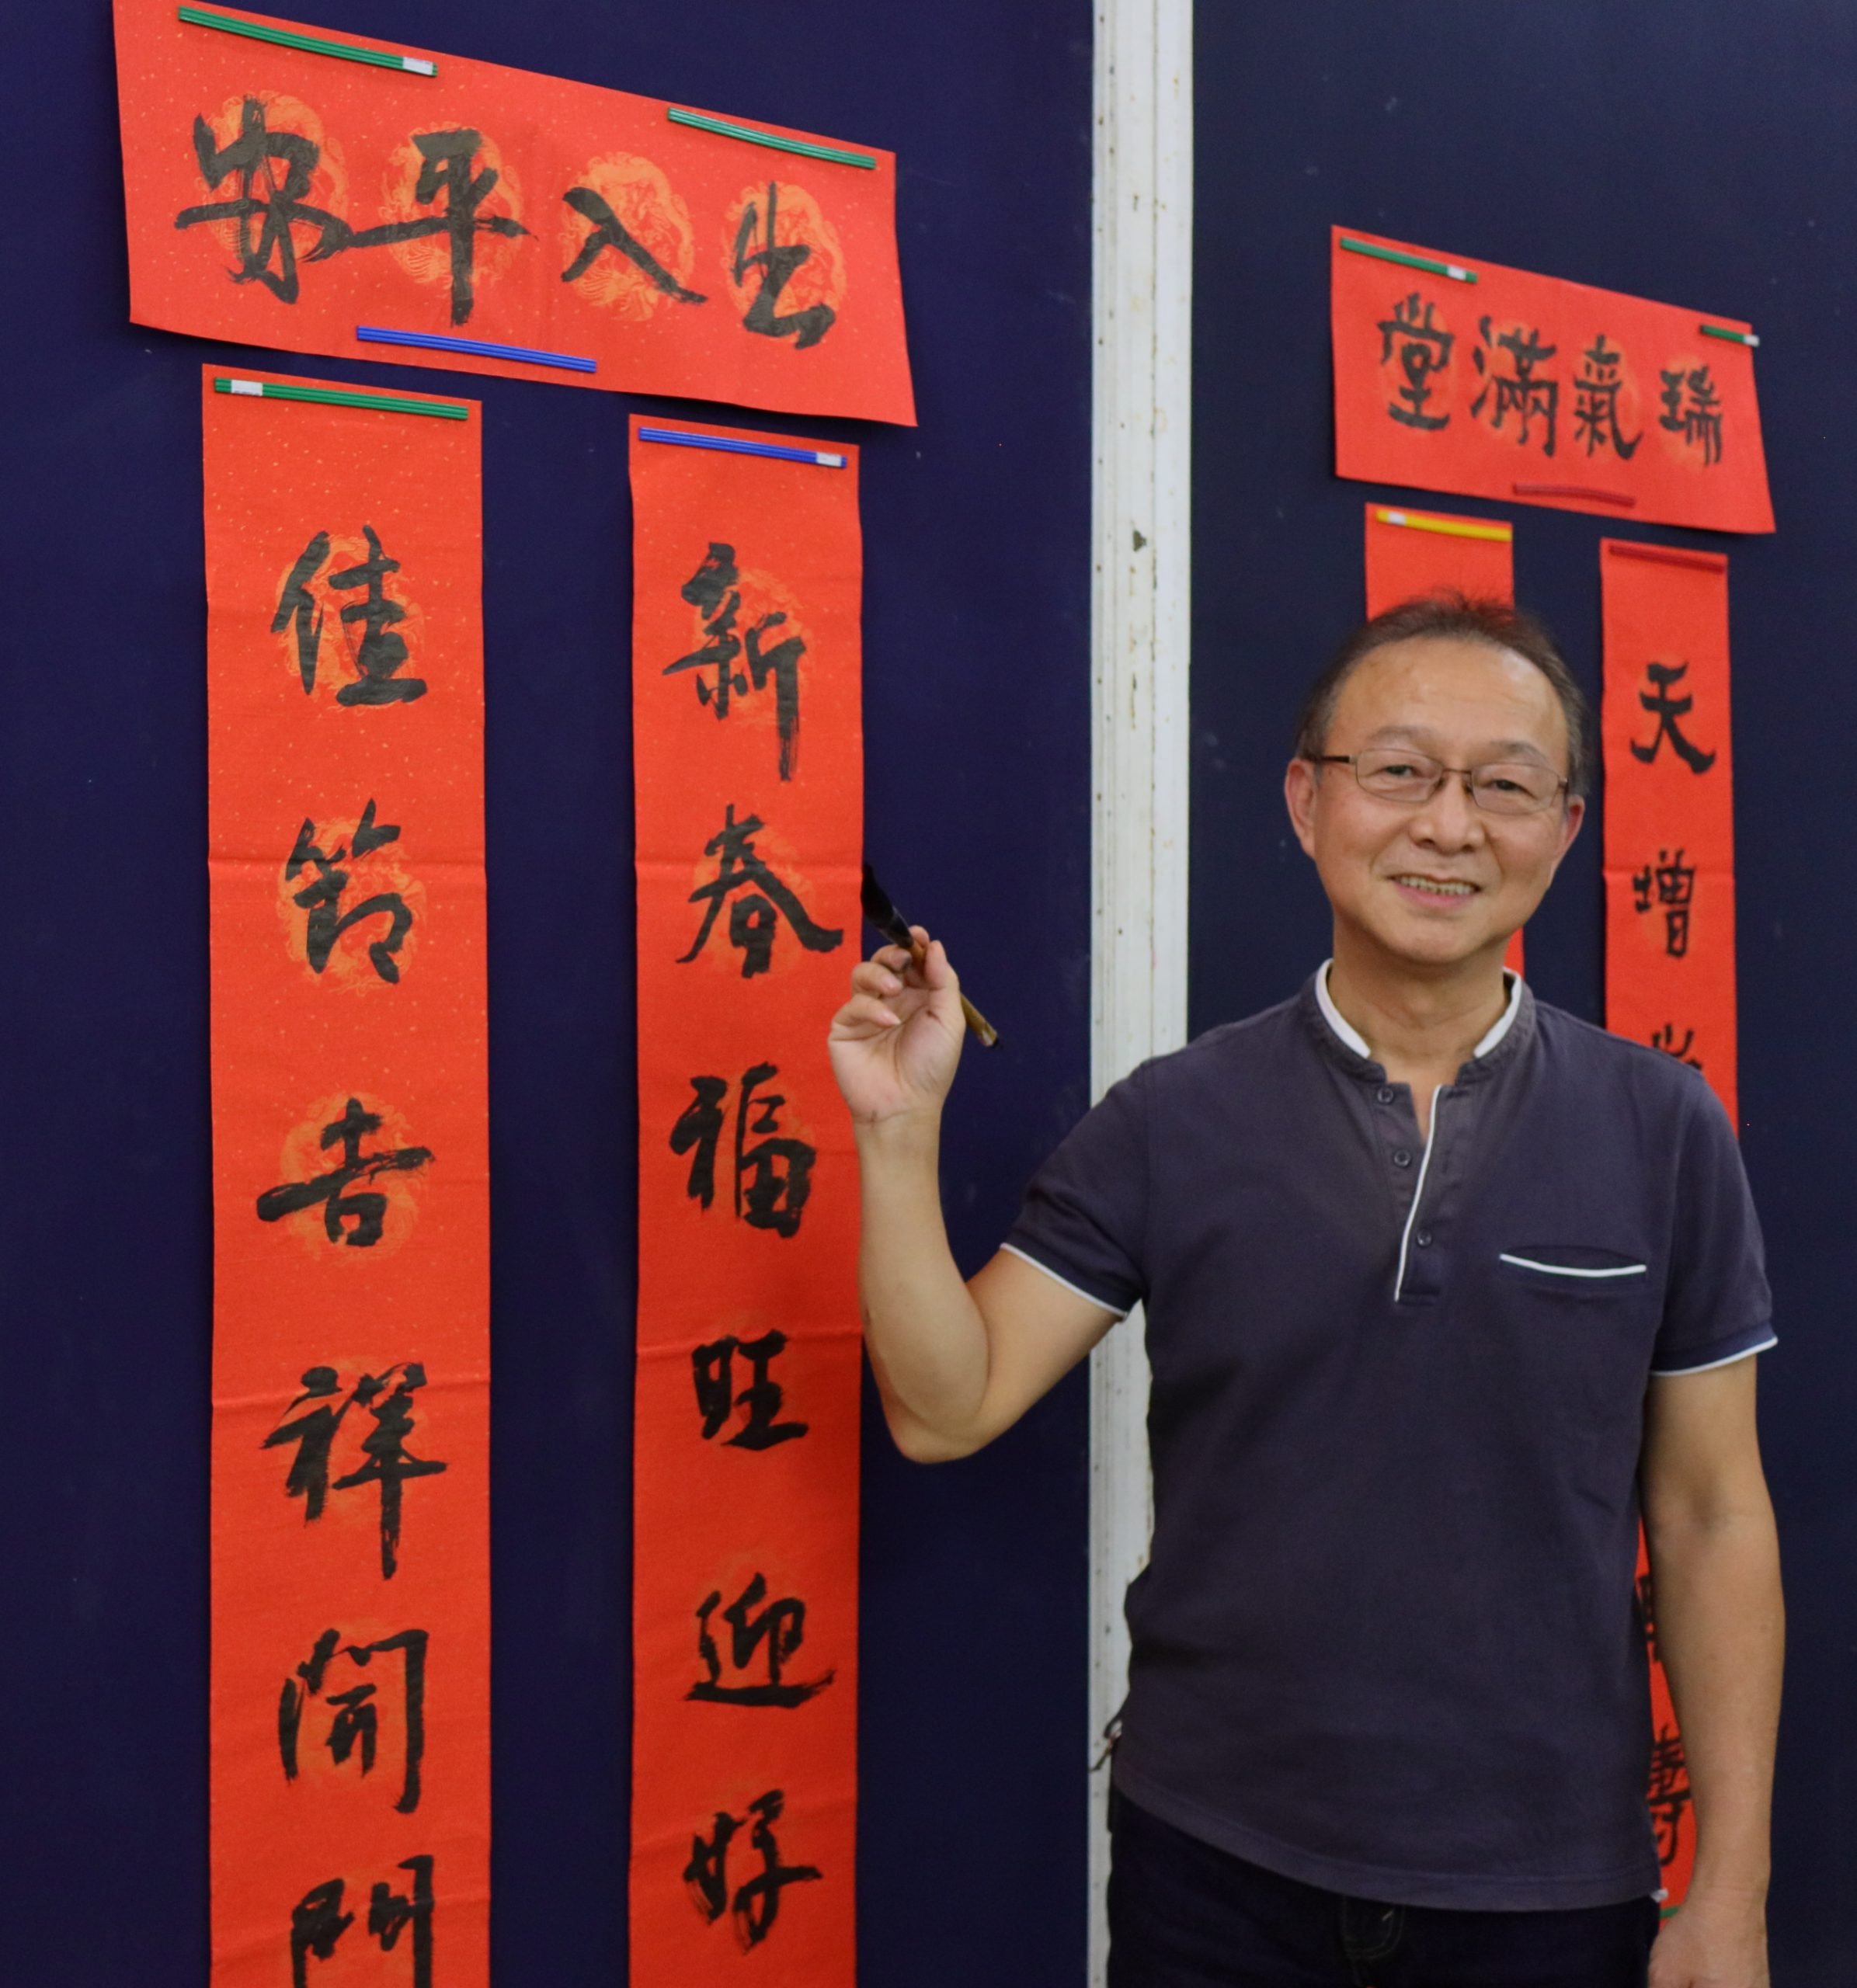 出入平安
新春福旺迎好
佳節吉祥開門
瑞氣滿堂
天增歲
壽